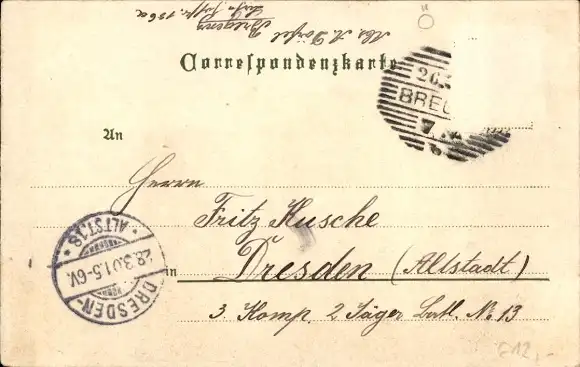 Abs. A. Dörfel
Bregenz
Correspondenzkarte
26.
BREG
An
Herrn
Fritz Kusche
in Dresden (Altstadt)
3. Komp. 2 Jäger Batl. No. 13
DRESDEN-ALTST.18
28.3.01.5-6V.
€12,-